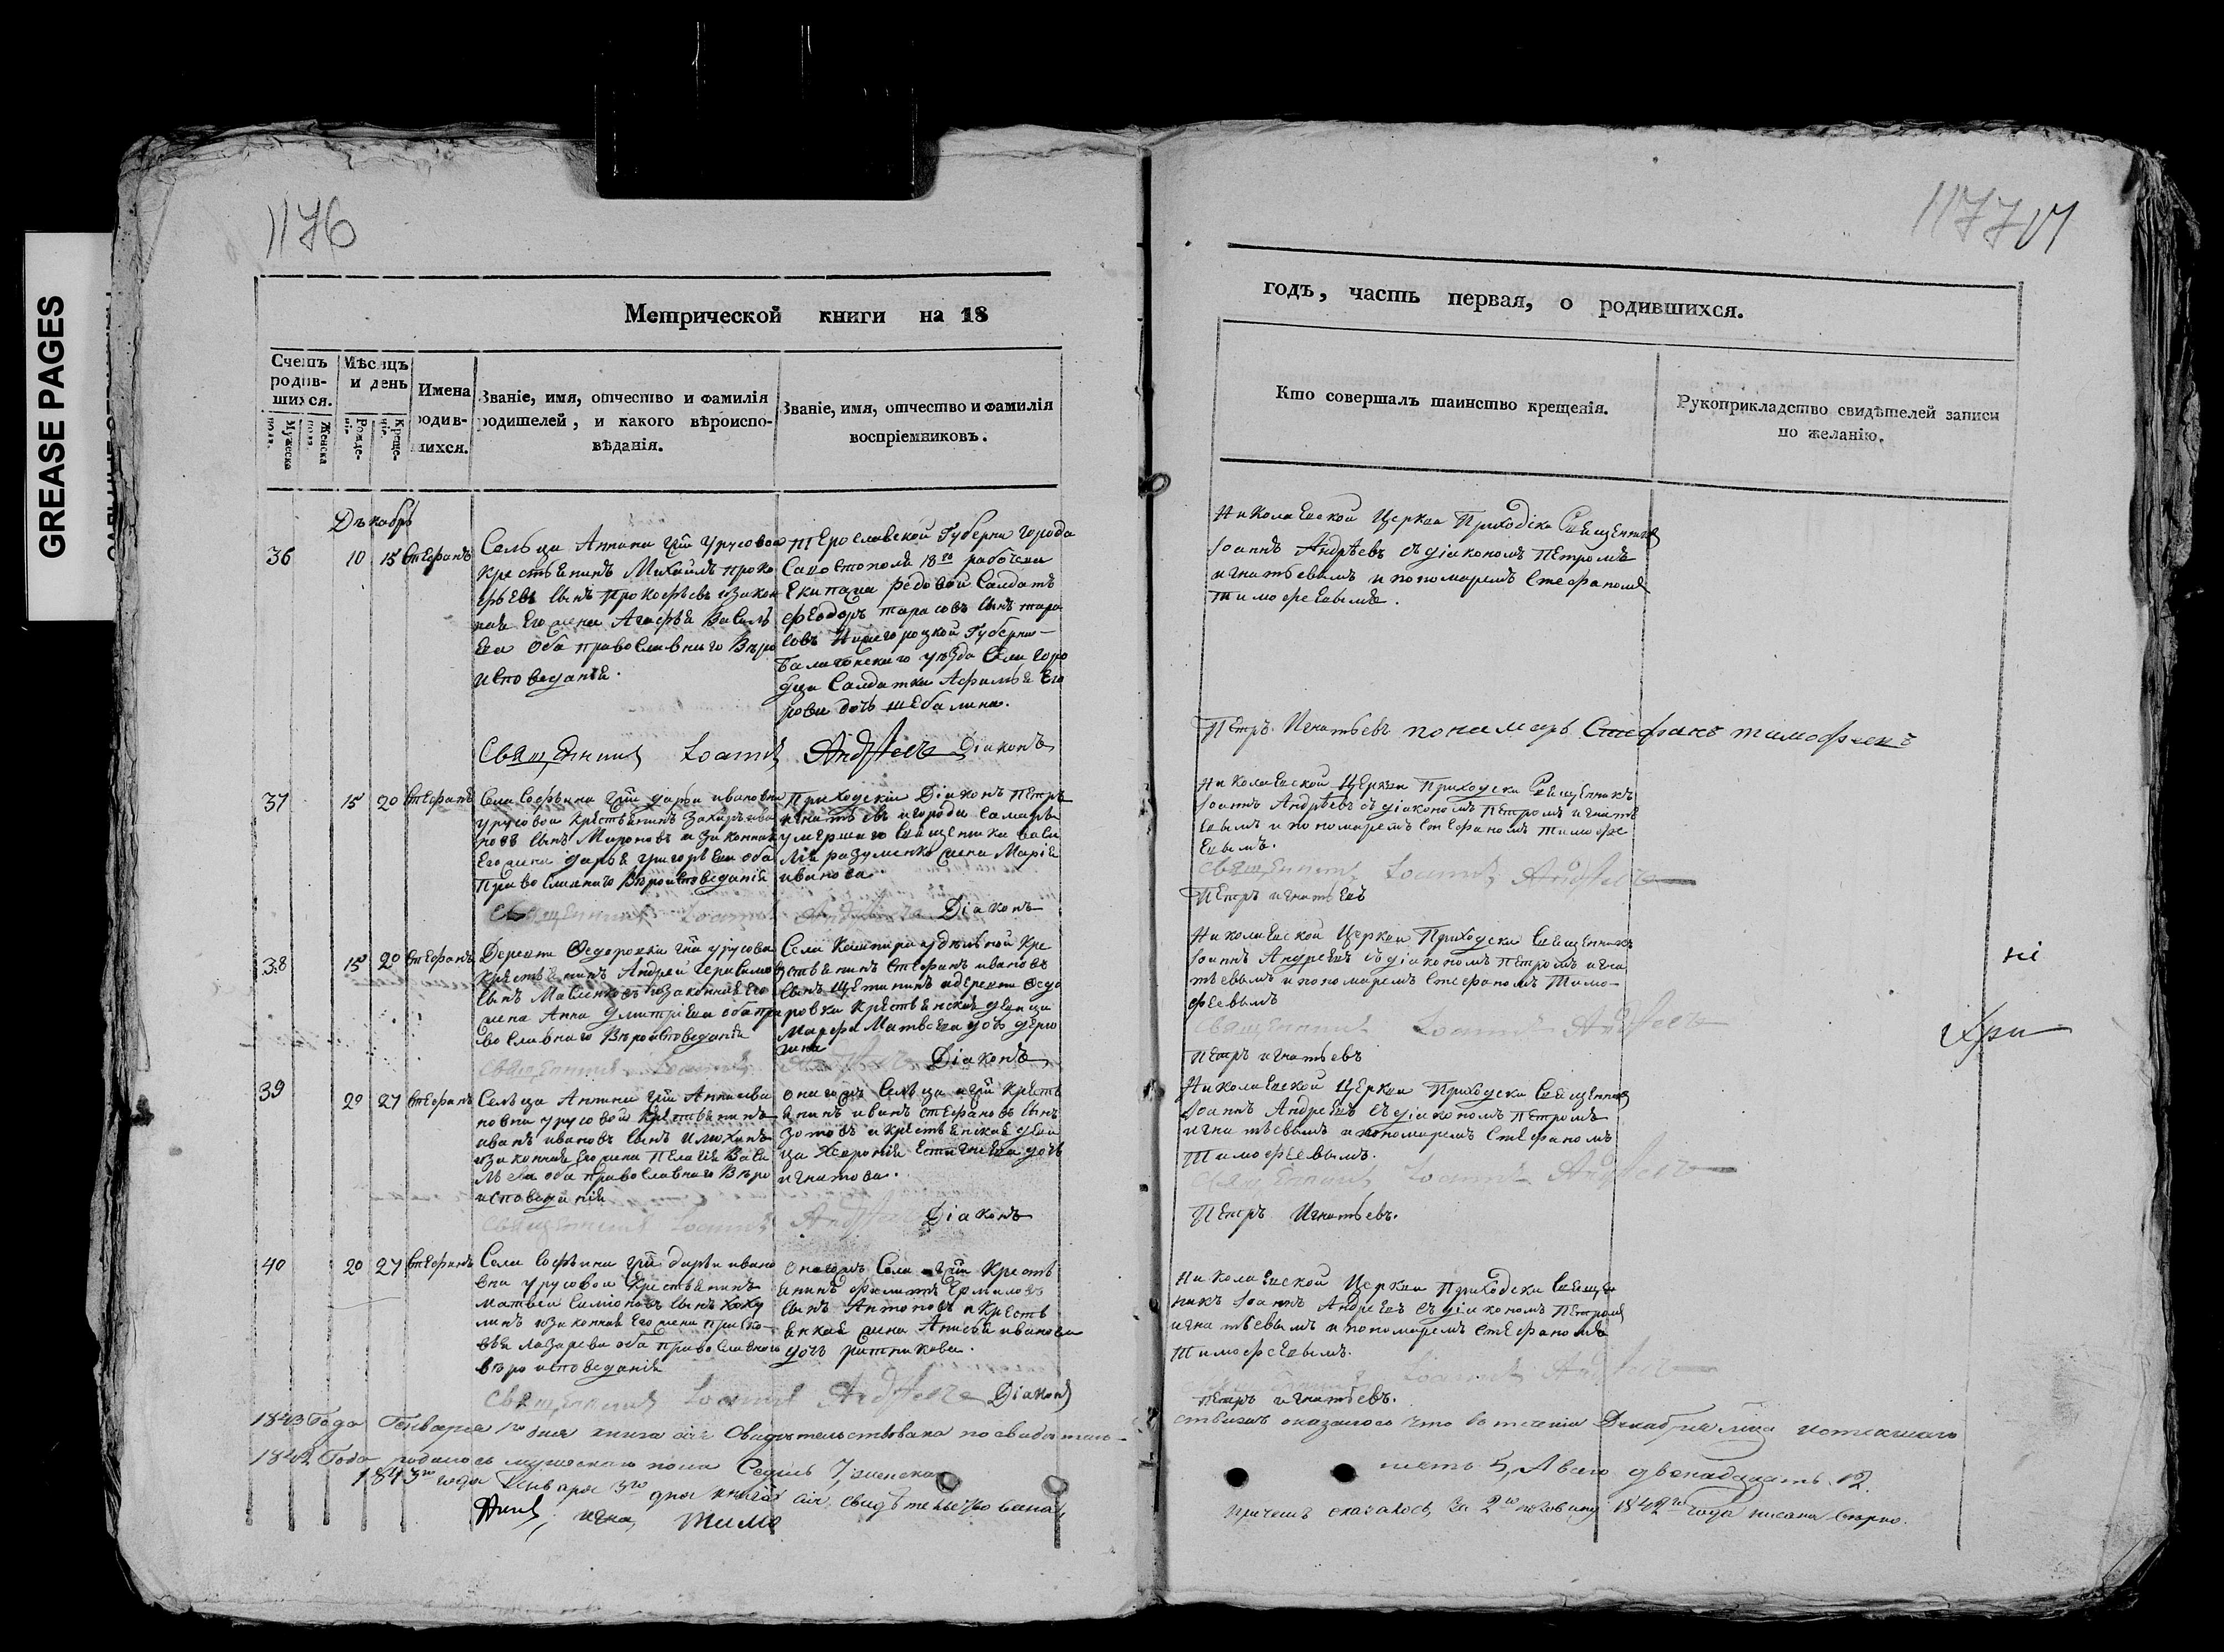 GREASE PAGES
1176
Метрической книги на 18
Счетъ родив-шихся.
Мужеска пола.
Женска пола.
Мѣсяцъ и день
Рожде-нія.
Креще-нія.
Имена родив-шихся.
Званіе, имя, отчество и фамилія родителей, и какого вѣроиспо-вѣданія.
Званіе, имя, отчество и фамилія воспріемниковъ.
Декабрь
36
10
15
Стефанъ
Сельца Аннина гжи Урусовой
крестьянинъ Михаилъ Проко
фьевъ сынъ Прокофьевъ и закон
ная его жена Агафья Василь
ева оба православнаго вѣро
исповеданія.
Губерни города
18го рабочева
Екипажа редовой Салдатъ
Феодоръ тарасовъ сынъ тара
совъ Нижегороцкой Губерни
Балахонскаго уѣзда Села горо
дца Салдатка Афимья Его
рова дочь шебалина.
Священникъ Іоаннъ Андреевъ Діаконъ
37
15
20
Стефанъ
Села Софьина гжи дарьи ивановны
урусовой крестьянинъ Захаръ
сынъ Мироновъ и законная
Его жена дарья григорьева оба
Православнаго Вѣроисповеданія
Приходскии Діаконъ Петръ
игнатьевъ и города Самары
умершаго священника васи
лія разуменко жена Марія
иванова
Священникъ Іоаннъ Андреевъ Діаконъ
38
15
20
Стефанъ
Деревни Федоровки гжи урусовой
крестьянинъ Андреи герасимовъ
сынъ Масленковъ и законная его
жена Анна дмитріева оба пра
вославнаго Вѣроисповеданія
Села Кашпира удѣльной кре
стьянинъ Стефанъ ивановъ
сынъ щетининъ и деревни Федо
ровки крестьянская девица
Марфа Матвеева дочь
Священникъ Іоаннъ Андреевъ Діаконъ
39
20
27
Стефанъ
Сельца Аннина гжи Анны ива
новны урусовой крестьянинъ
иванъ ивановъ сынъ илюхинъ
и законная его жена Пелагія Васи
льева оба православнаго Вѣро
исповеданія
онагожъ Сельца и гжи кресть
янинъ иванъ стефановъ сынъ
зотовъ и крестьянская деви
ца Хавронія Естигнеева дочь
игнатова.
Священникъ Іоаннъ Андреевъ Діаконъ
40
20
27
Стефанъ
Села Софьина гжи дарьи ивано
вны урусовой крестьянинъ
матвеи симіоновъ сынъ хоху
линъ и законная его жена праско
вья лазарева оба православнаго
вѣроисповеданія
онагожъ Села и гжи кресть
янинъ филиппъ Ермиловъ
сынъ Антоновъ и кресть
янская жена Анисья иванова
дочь
Священникъ Іоаннъ Андреевъ Діаконъ
1843 Года Генваря 1го дня книга сія свидѣтельствована по свидѣтель-
1842 Года родилось мужескаго пола Седмь 7, женска
1843го года Генваря 3го дня книга сія свидѣтельствована,
Анд, игна, Тимо
1177
годъ, часть первая, о родившихся.
Кто совершалъ таинство крещенія.
Рукоприкладство свидѣтелей записи по желанію.
Николаевской Церкви Приходски Священникъ
Іоаннъ Андрѣевъ съ діакономъ Петромъ
игнатьевымъ и пономаремъ Стефаномъ
тимофеевымъ.
Петръ Игнатьевъ пономарь Стефанъ тимофеевъ
Николаевской Церкви Приходски Священникъ
Іоаннъ Андрѣевъ съ діакономъ Петромъ игнать
евымъ и пономаремъ Стефаномъ тимофе
евымъ.
Священникъ Іоаннъ Андреевъ
Петръ игнатьевъ
Николаевской Церкви Приходски Священникъ
Іоаннъ Андреевъ съ діакономъ Петромъ игна
тьевымъ и пономаремъ Стефаномъ Тимо-
феевымъ
Священникъ Іоаннъ Андреевъ
Петръ игнатьевъ
Николаевской Церкви Приходски Священникъ
Іоаннъ Андреевъ съ діакономъ Петромъ
игнатьевымъ и пономаремъ Стефаномъ
Тимофеевымъ.
Священникъ Іоаннъ Андреевъ
Петръ Игнатьевъ.
Николаевской Церкви Приходски Священ
никъ Іоаннъ Андреевъ съ діакономъ Петромъ
игнатьевымъ и пономаремъ Стефаномъ
Тимофеевымъ.
Іоаннъ Андреевъ
Петръ игнатьевъ.
ствамъ оказалось что въ теченіи Декабря мца истекшаго
пять 5, А всего двенадцать 12.
причемъ оказалось за 2ю половину 1842го года писана верно.